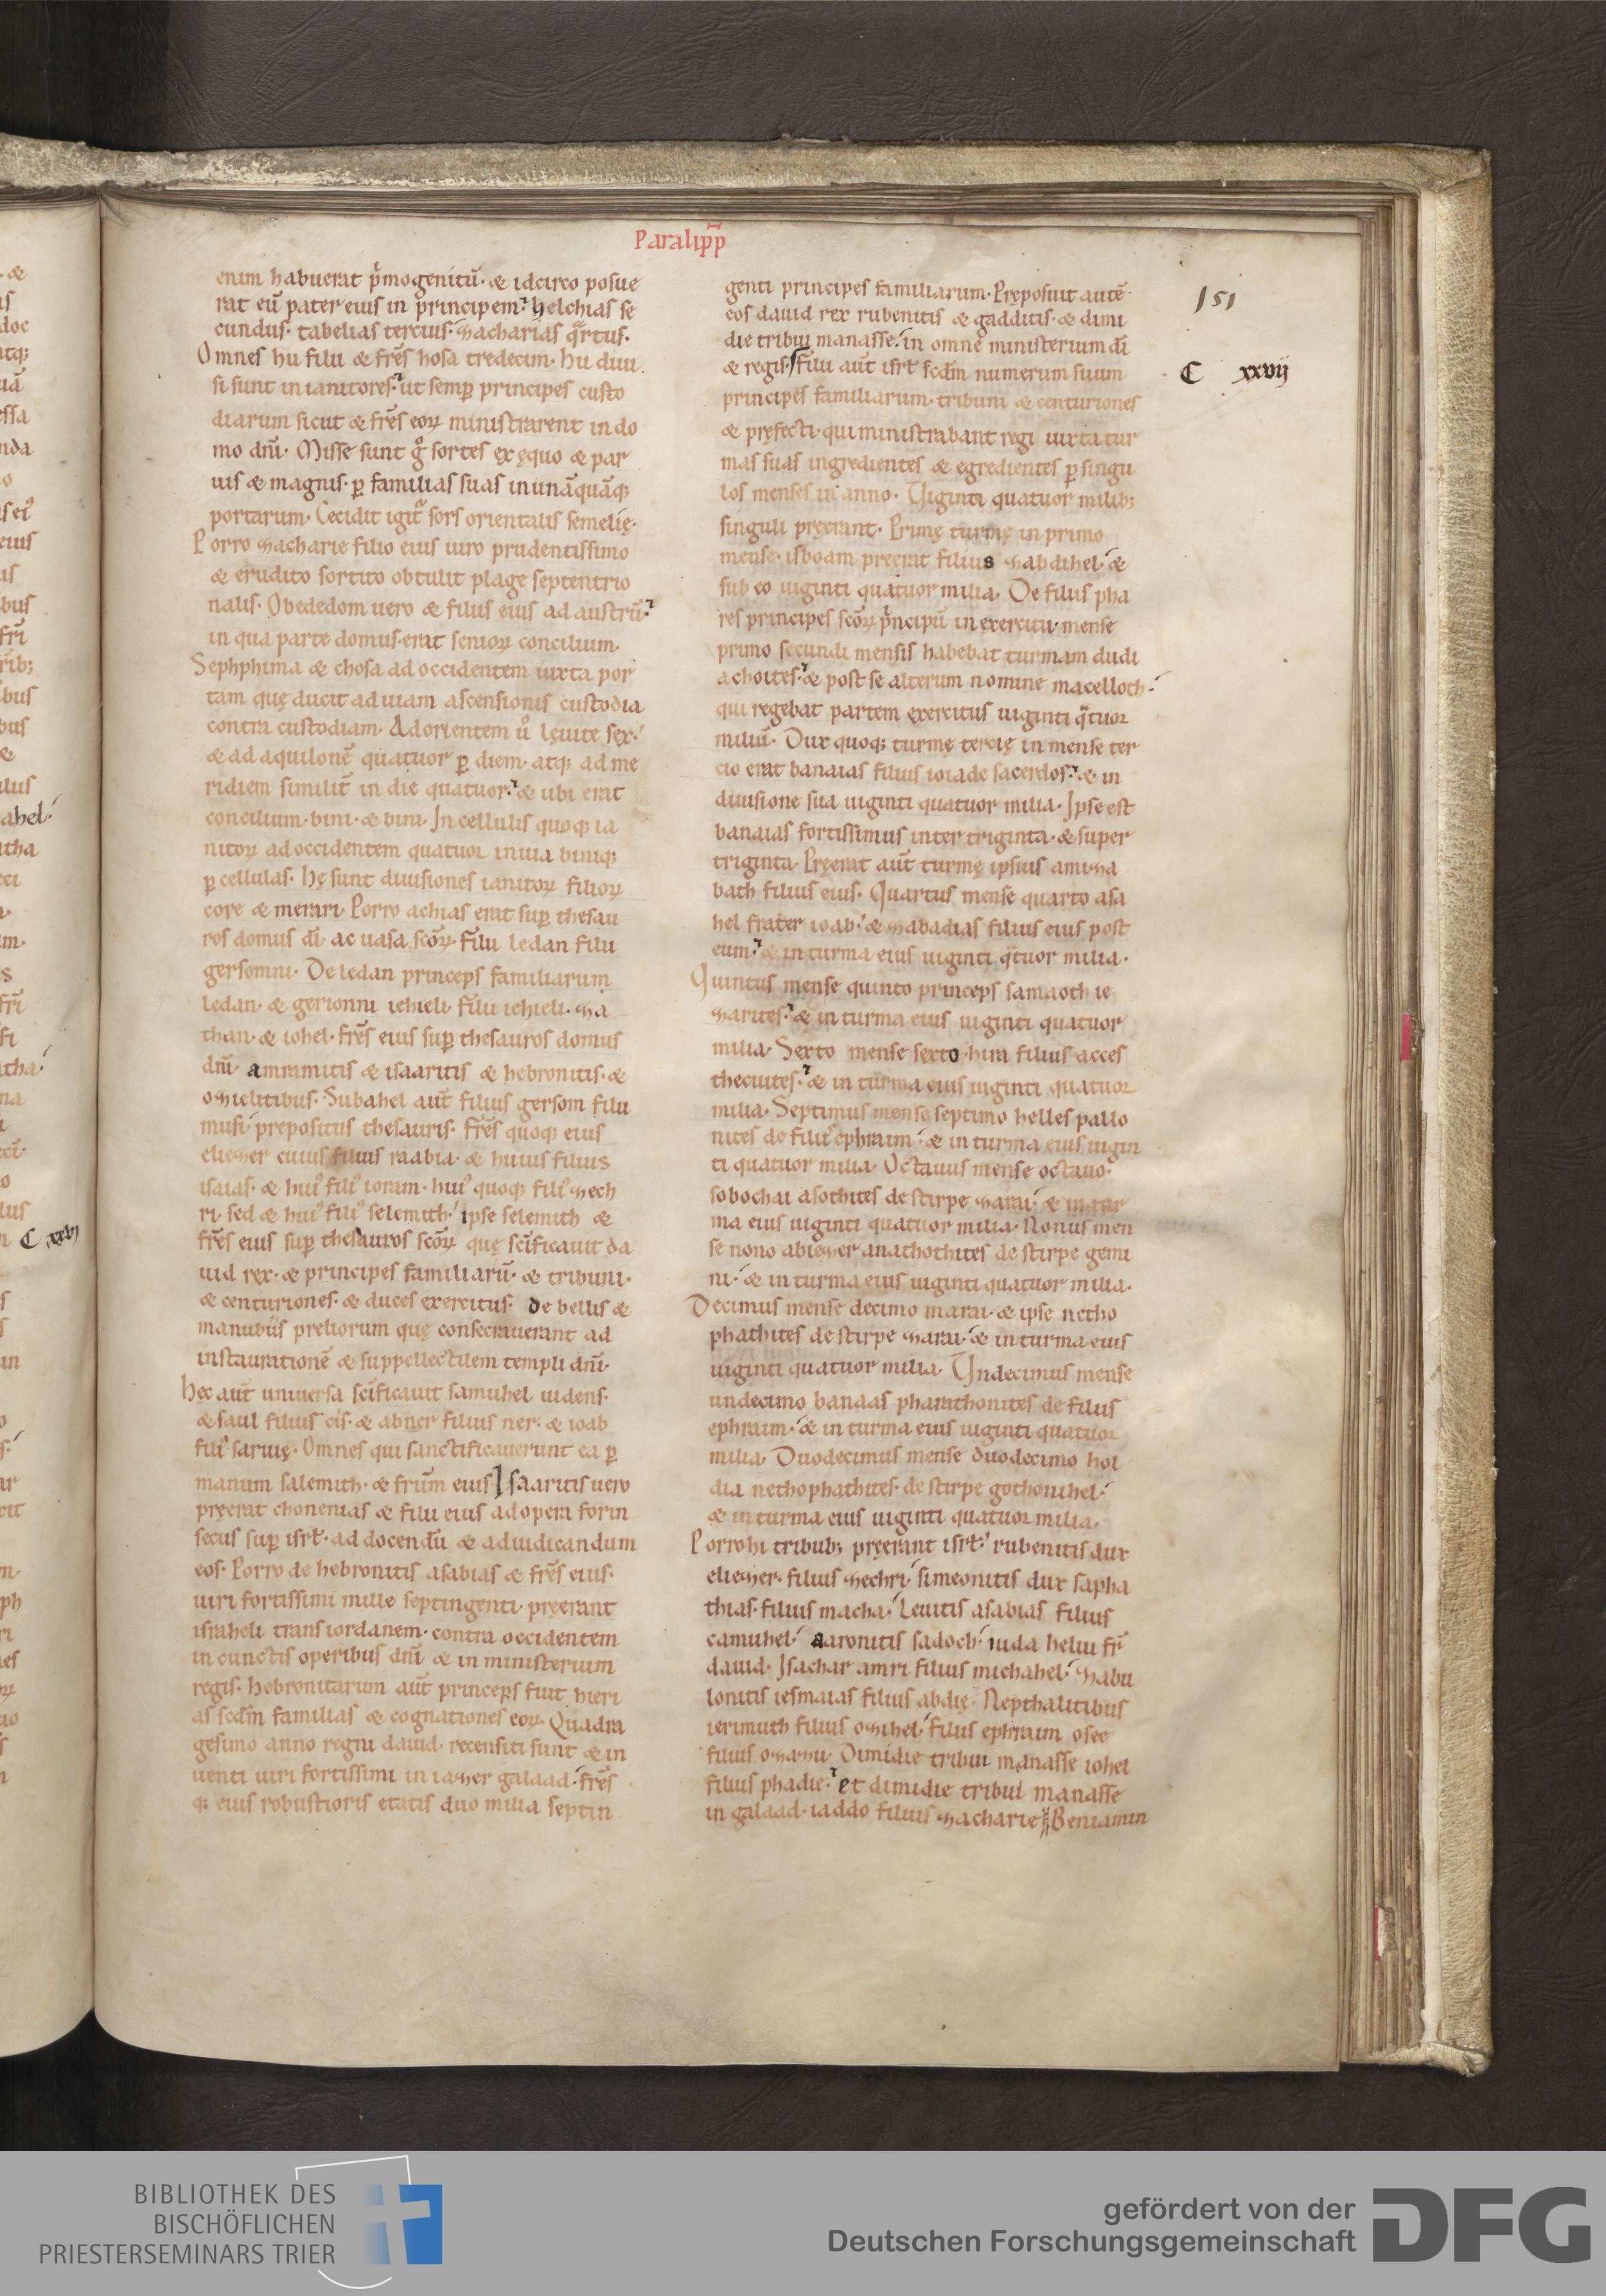 Paralipp̄
enim habuerat p̍mogenitū· & idcirco posue
rat eū pater eius in principem· helchias se
cundus· tabelias tercius· zacharias qͣrtus·
Omnes hii filii & fr̄es hosa tredecim· Hii diui
si sunt in ianitores· ut semꝑ principes custo
diarum sicut & fr̄es eoꝝ ministrarent in do
mo dn̄i· Misse sunt gͦ sortes ex ęquo & par
uis & magnis· ꝑ familias suas in unāquāq;
portarum· Cecidit igit̄ sors orientalis semelię·
Porro zacharie filio eius uiro prudentissimo
& erudito sortito obtulit plage septentrio
nalis· Obededom uero & filiis eius ad austrū·
in qua parte domus erat senioꝝ concilium·
Sephphima & chosa ad occidentem iuxta por
tam quę ducit ad uiam ascensionis custodia
contra custodiam· Ad orientem uͦ leuite sex·
& ad aquilonē quatuor ꝑ diem· atq; ad me
ridiem similit̄ in die quatuor· & ubi erat
concilium· bini· & bini· In cellulis quoq; ia
nitoꝝ ad occidentem quatuor in uia biniq;
ꝑ cellulas· Hę sunt diuisiones ianitoꝝ filioꝝ
core & merari· Porro achias erat suꝑ thesau
ros domus dī· ac uasa scōꝝ· Filii ledan filii
gersomni· De ledan princeps familiarum
ledan· & gerionni iehieli· filii iehieli· za
than· & iohel· fr̄es eius suꝑ thesauros domus
dn̄i· amramitis & isaaritis & hebronitis· &
ozielitibus· Subahel aut̄ filius gersom filii
musi· prepositus thesauris· fr̄es quoq; eius
eliezer cuius filius raabia· & huius filius
isaias· & hui᾿ fili᾿ ioram· hui᾿ quoq; fili᾿ zech
ri· sed & hui᾿ fili᾿ selemith· ipse selemith &
fr̄es eius suꝑ thesauros scōꝝ quę scīficauit da
uid rex· & principes familiarū· & tribuni·
& centuriones· & duces exercitus· de bellis &
manubiis preliorum quę consecrauerant ad
instaurationē & suppellectilem templi dn̄i·
Hęc aut̄ uniuersa scīficauit samuhel uidens·
& saul filius cis· & abner filius ner· & ioab
fili᾿ saruię· Omnes qui sanctificauerunt ea ꝑ
manum salemith· & frūm eius Isaaritis uero
pręerat chonenias & filii eius ad opera forin
secus suꝑ isrł· ad docendū & ad iudicandum
eos· Porro de hebronitis asabias & fr̄es eius·
uiri fortissimi mille septingenti pręerant
israheli trans iordanem· contra occidentem
in cunctis operibus dn̄i & in ministerium
regis· hebronitarum aut̄ princeps fuit hieri
as scdm̄ familias & cognationes eoꝝ· Quadra
gesimo anno regni dauid· recensiti sunt & in
uenti uiri fortissimi in iazer galaad· fr̄es
q; eius robustioris etatis duo milia septin
genti principes familiarum· Pręposuit autē
eos dauid rex rubenitis & gadditis· & dimi
die tribui manasse· in omnē ministerium dī
& regis· Filii aut̄ isrł scdm̄ numerum suum
principes familiarum· tribuni & centuriones
& pręfecti· qui ministrabant regi iuxta tur
mas suas ingredientes & egredientes ꝑ singu
los menses in anno· Uiginti quatuor milib;
singuli pręerant· Primę turmę in primo
mense· isboam preerat filius zabdihel· &
sub eo uiginti quatuor milia· De filiis pha
res principes scōꝝ p̍ncipū in exercitu· mense
primo secundi mensis habebat turmam dudi
achoites· & post se alterum nomine macelloth·
qui regebat partem exercitus uiginti qͣtuor
miliū· Dux quoq; turmę tercię in mense ter
cio erat banaias filius ioiade sacerdos· & in
diuisione sua uiginti quatuor milia· Ipse est
banaias fortissimus inter triginta· & super
triginta· Pręerat aut̄ turmę ipsius amiza
bath filius eius· Quartus mense quarto asa
hel frater ioab· & zabadias filius eius post
eum· & in turma eius uiginti qͣtuor milia·
Quintus mense quinto princeps samaoth ie
zarites· & in turma eius uiginti quatuor
milia· Sexto mense sexto hira filius acces
thecuites· & in turma eius uiginti quatuor
milia· Septimus mense septimo helles pallo
nites de fili᾿ ephraim· & in turma eius uigin
ti quatuor milia· Octauus mense octauo·
sobochai asothites de stirpe zarai· & in tur
ma eius uiginti quatuor milia· Nonus men
se nono abiezer anathothites de stirpe gemi
ni· & in turma eius uiginti quatuor milia·
Decimus mense decimo marai· & ipse netho
phathites de stirpe zarai· & in turma eius
uiginti quatuor milia· Undecimus mense
undecimo banaas pharathonites de filiis
ephraim· & in turma eius uiginti quatuor
milia· Duodecimus mense duodecimo hol
dia nethophathites· de stirpe gothonihel·
& in turma eius uiginti quatuor milia·
Porro hi tribub; pręerant isrł· rubenitis dux
eliezer· filius zechri· simeonitis dux sapha
thias· filius macha· Leuitis asabias filius
camuhel· aaronitis sadoch· iuda heliu fr̄
dauid· Isachar amri filius michahel· zabu
lonitis iesmaias filius abdię· Nepthalitibus
ierimuth filius ozihel· filiis ephraim osee
filius ozaziu· Dimidie tribui manasse iohel
filius phadie· et dimidie tribui manasse
in galaad· iaddo filius zacharie Beniamin
151
C xxvij
C xxvj
BIBLIOTHEK DES
BISCHÖFLICHEN
PRIESTERSEMINARS TRIER
gefördert von der
Deutschen Forschungsgemeinschaft
DFG